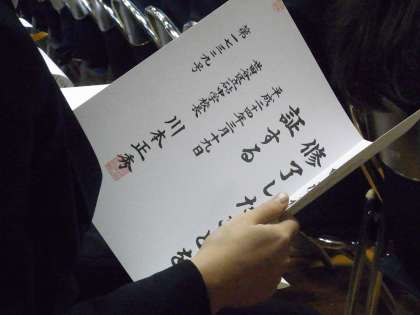 修了したことを
証する
平成二十四年三月十九日
学校長
川本正秀
第一七三九号